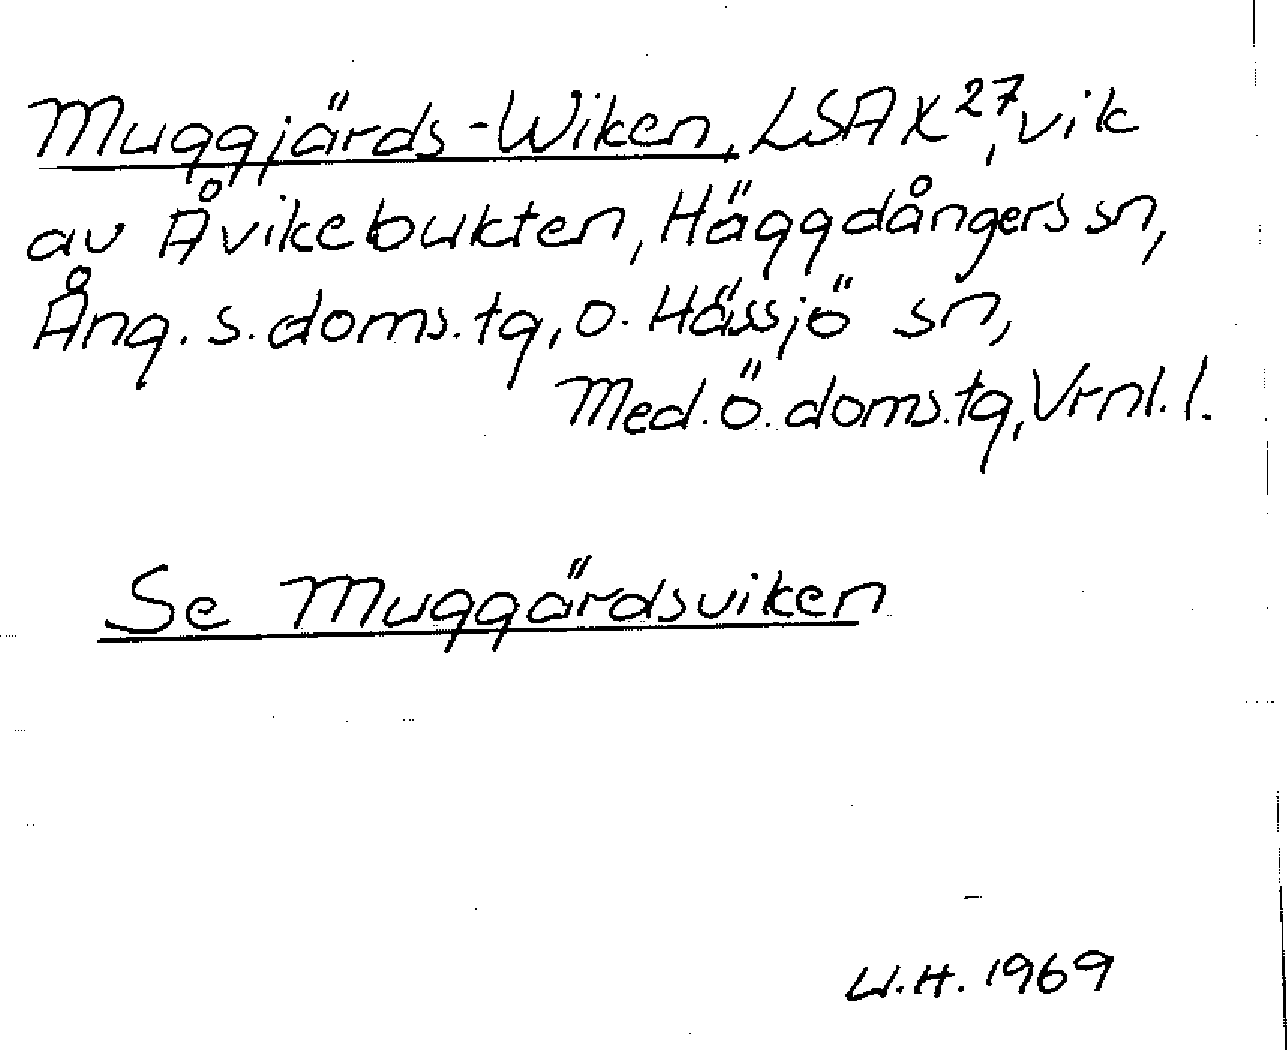 Muggjärds-Wiken, LSA X²⁷, vik
av Åvikebukten, Häggdångers sn,
Ång. s. doms. tg, o. Hässjö sn,
Med. ö. doms. tg, Vrnl. l.
Se Muggärdsviken
W.H. 1969